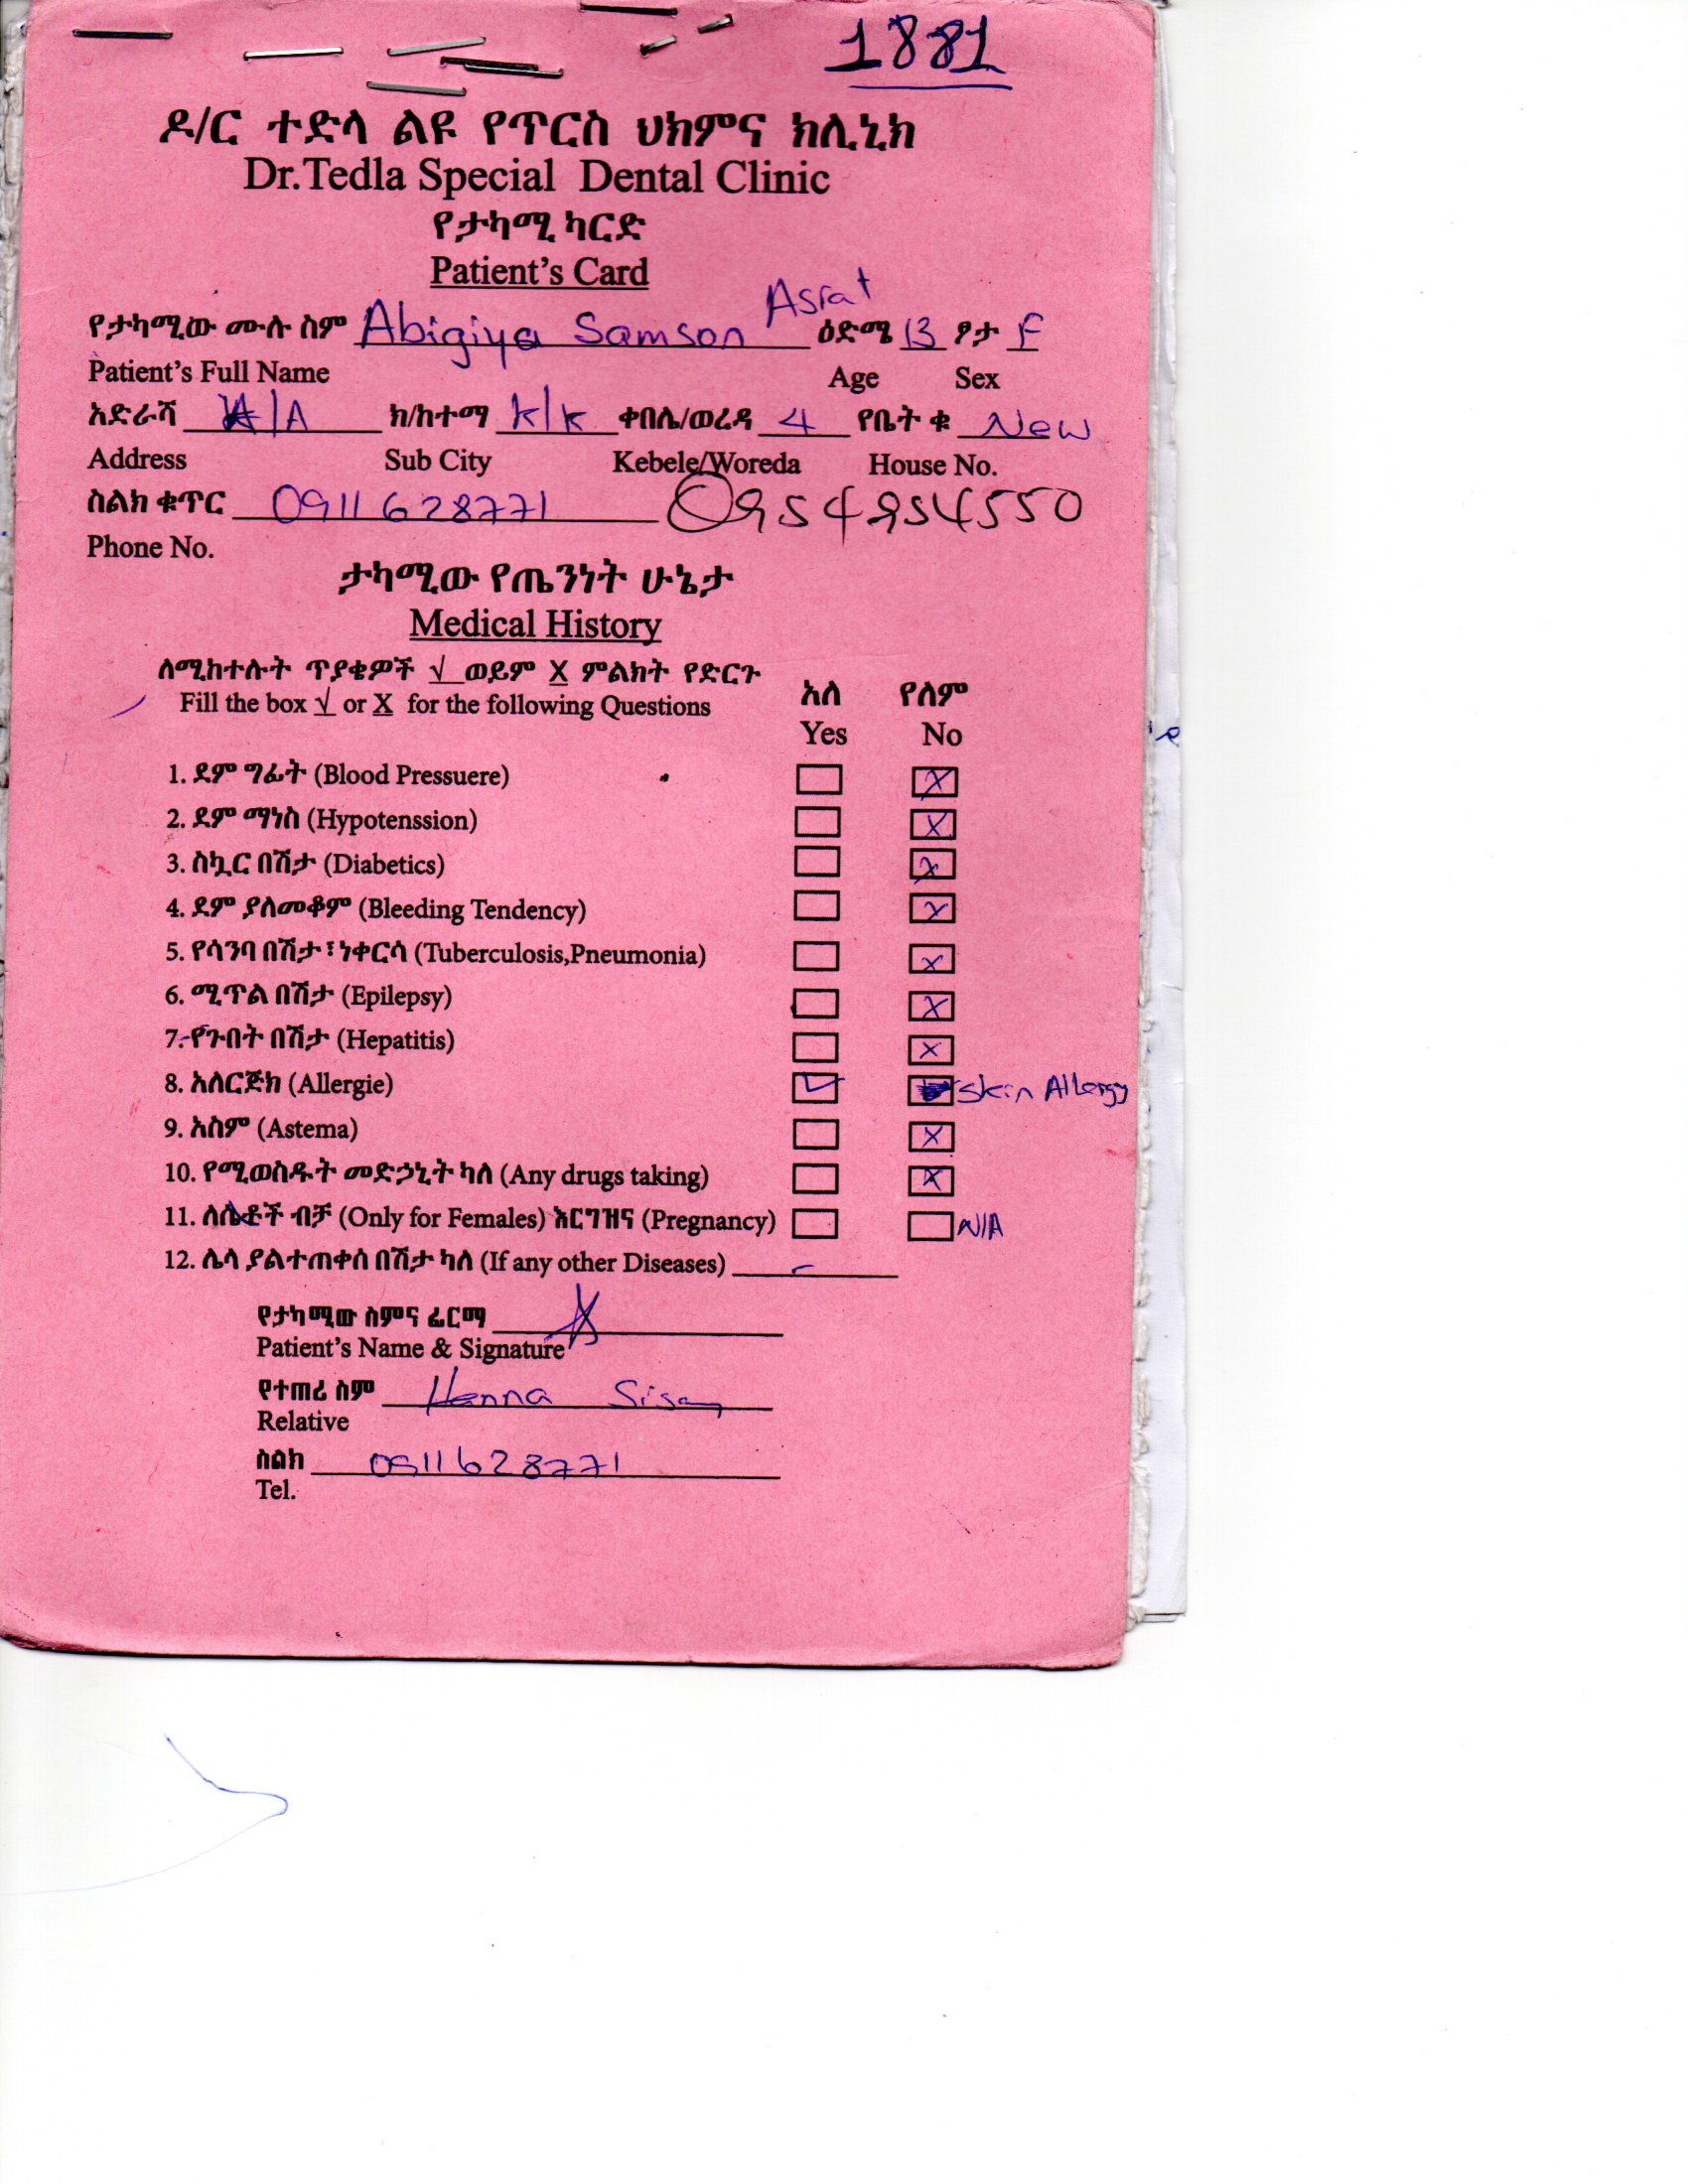 1881
ዶ/ር ተድላ ልዩ የጥርስ ህክምና ክሊኒክ
Dr.Tedla Special Dental Clinic
የታካሚ ካርድ
Patient's Card
የታካሚው ሙሉ ስም Abigiya Samson Asrat ዕድሜ 13 ፆታ F
Patient's Full Name Age Sex
አድራሻ A/A ክ/ከተማ K/K ቀበሌ/ወረዳ 4 የቤት ቁ New
Address Sub City Kebele/Woreda House No.
ስልክ ቁጥር 0911628771 0954954550
Phone No.
ታካሚው የጤንነት ሁኔታ
Medical History
ለሚከተሉት ጥያቄዎች √ ወይም X ምልክት የድርጉ
Fill the box √ or X for the following Questions
አለ የለም
Yes No
1. ደም ግፊት (Blood Pressuere) X
2. ደም ማነስ (Hypotenssion) X
3. ስኳር በሽታ (Diabetics) X
4. ደም ያለመቆም (Bleeding Tendency) X
5. የሳንባ በሽታ፣ነቀርሳ (Tuberculosis,Pneumonia) X
6. ሚጥል በሽታ (Epilepsy) X
7. የጉበት በሽታ (Hepatitis) X
8. አለርጅክ (Allergie) ✓ skin Allergy
9. አስም (Astema) X
10. የሚወስዱት መድኃኒት ካለ (Any drugs taking) X
11. ለሴቶች ብቻ (Only for Females) እርግዝና (Pregnancy) N/A
12. ሌላ ያልተጠቀሰ በሽታ ካለ (If any other Diseases) -
የታካሚው ስምና ፊርማ
Patient's Name & Signature
የተጠሪ ስም Henna
Relative
ስልክ 0911628771
Tel.